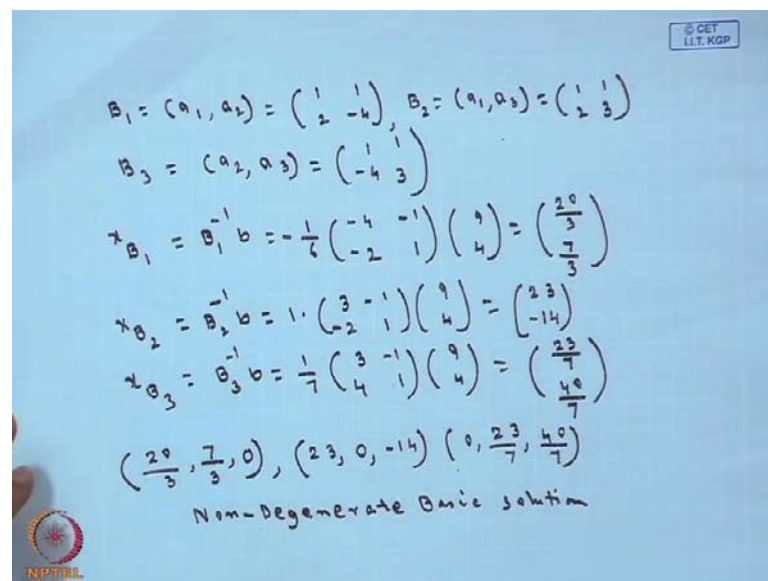 © CET
I.I.T. KGP
B₁ = (a₁, a₂) = (1 1; 2 -4), B₂ = (a₁, a₃) = (1 1; 2 3)
B₃ = (a₂, a₃) = (1 1; -4 3)
x_B₁ = B₁⁻¹ b = -1/6 (-4 -1; -2 1) (9; 4) = (20/3; 7/3)
x_B₂ = B₂⁻¹ b = 1. (3 -1; -2 1) (9; 4) = (23; -14)
x_B₃ = B₃⁻¹ b = 1/7 (3 -1; 4 1) (9; 4) = (23/7; 40/7)
(20/3, 7/3, 0), (23, 0, -14) (0, 23/7, 40/7)
Non-Degenerate Basic solution
NPTEL